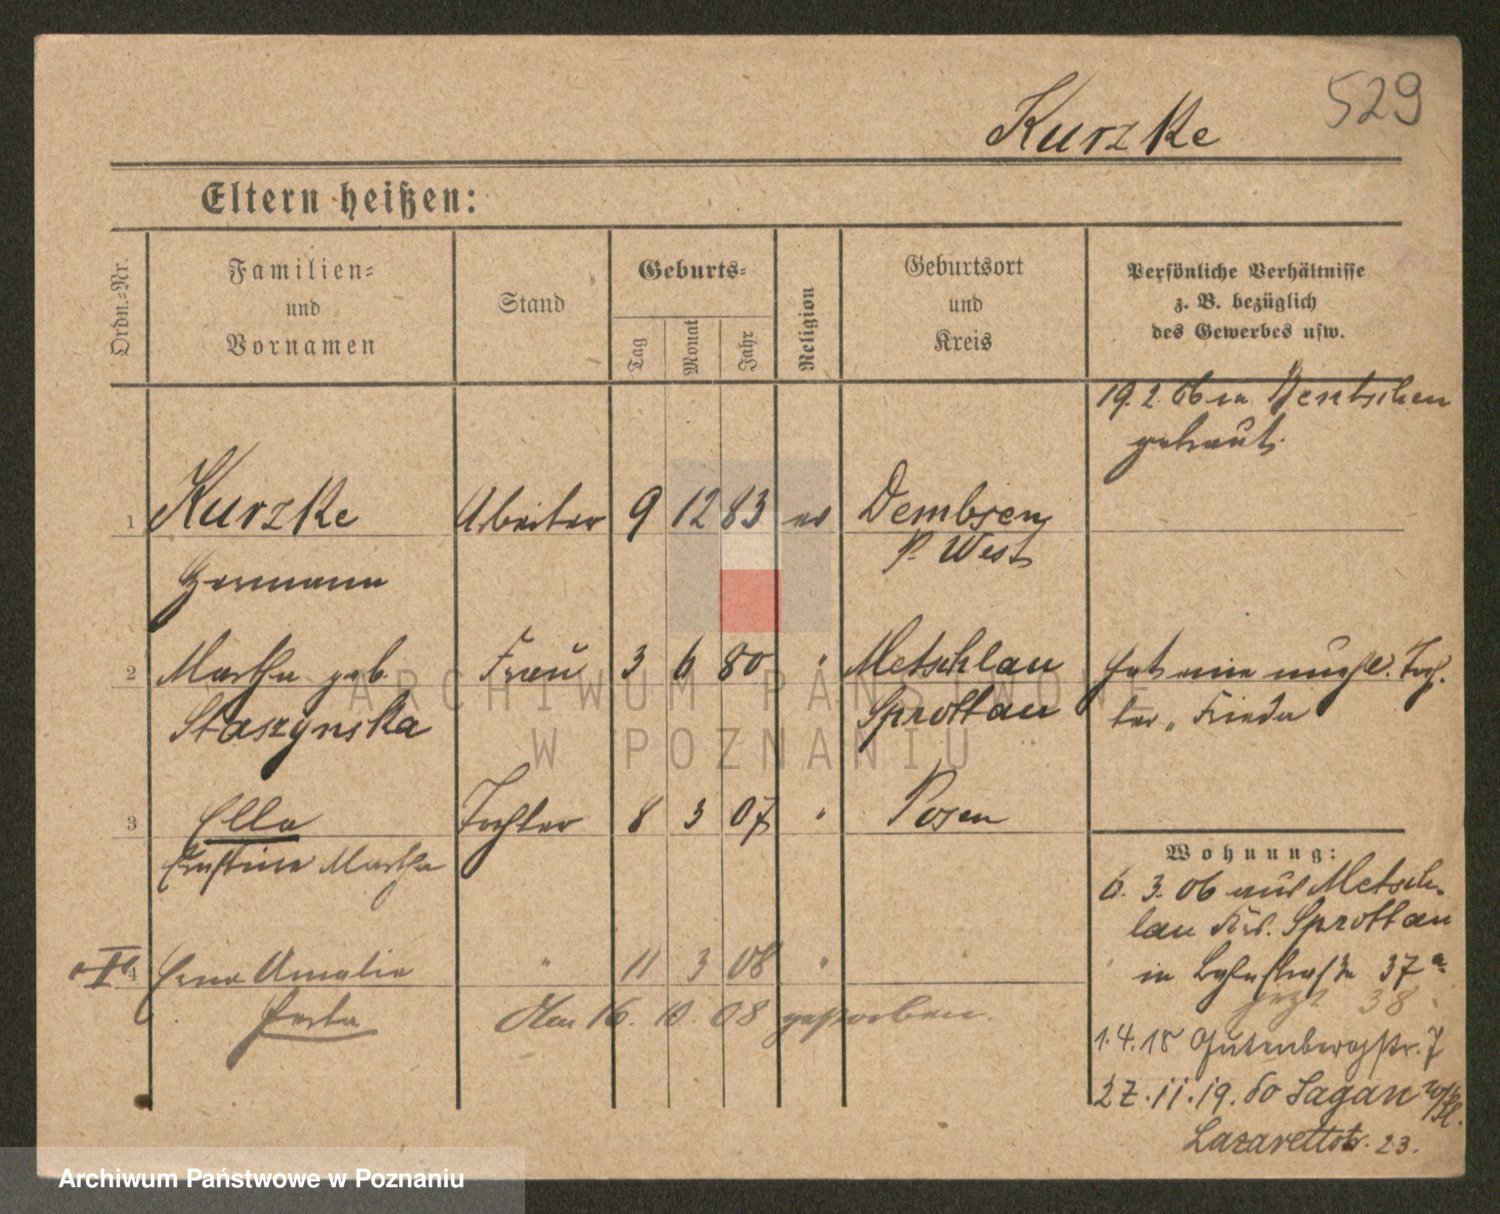 529
Kurzke
Eltern heißen:
Ordn.-Nr.
Familien-
und
Vornamen
Stand
Geburts-
Tag
Monat
Jahr
Religion
Geburtsort
und
Kreis
Persönliche Verhältnisse
z. B. bezüglich
des Gewerbes usw.
19. 2. 06 in Bentschen
getraut.
1 Kurzke Arbeiter 9 12 83 ev Dembsen
P. West
Hermann
2 Martha geb. Frau 3 6 80 " Metschlau
Staszynska Sprottau
hat eine unehl. Toch-
ter „ Frieda
3 Ella Tochter 8 3 07 " Posen
Ernstine Martha
4 Erna Amalie " 11 3 08 " "
Herta Am 16. 10. 08 gestorben.
Wohnung:
6. 3. 06 aus Metsch-
lau Krs. Sprottau
in Bahnstraße 37a
jetzt 38
1. 4. 18 Gutenbergstr. 7
27. 11. 19. Sagan
Lazarettstr. 23.
ARCHIWUM PAŃSTWOWE
W POZNANIU
Archiwum Państwowe w Poznaniu